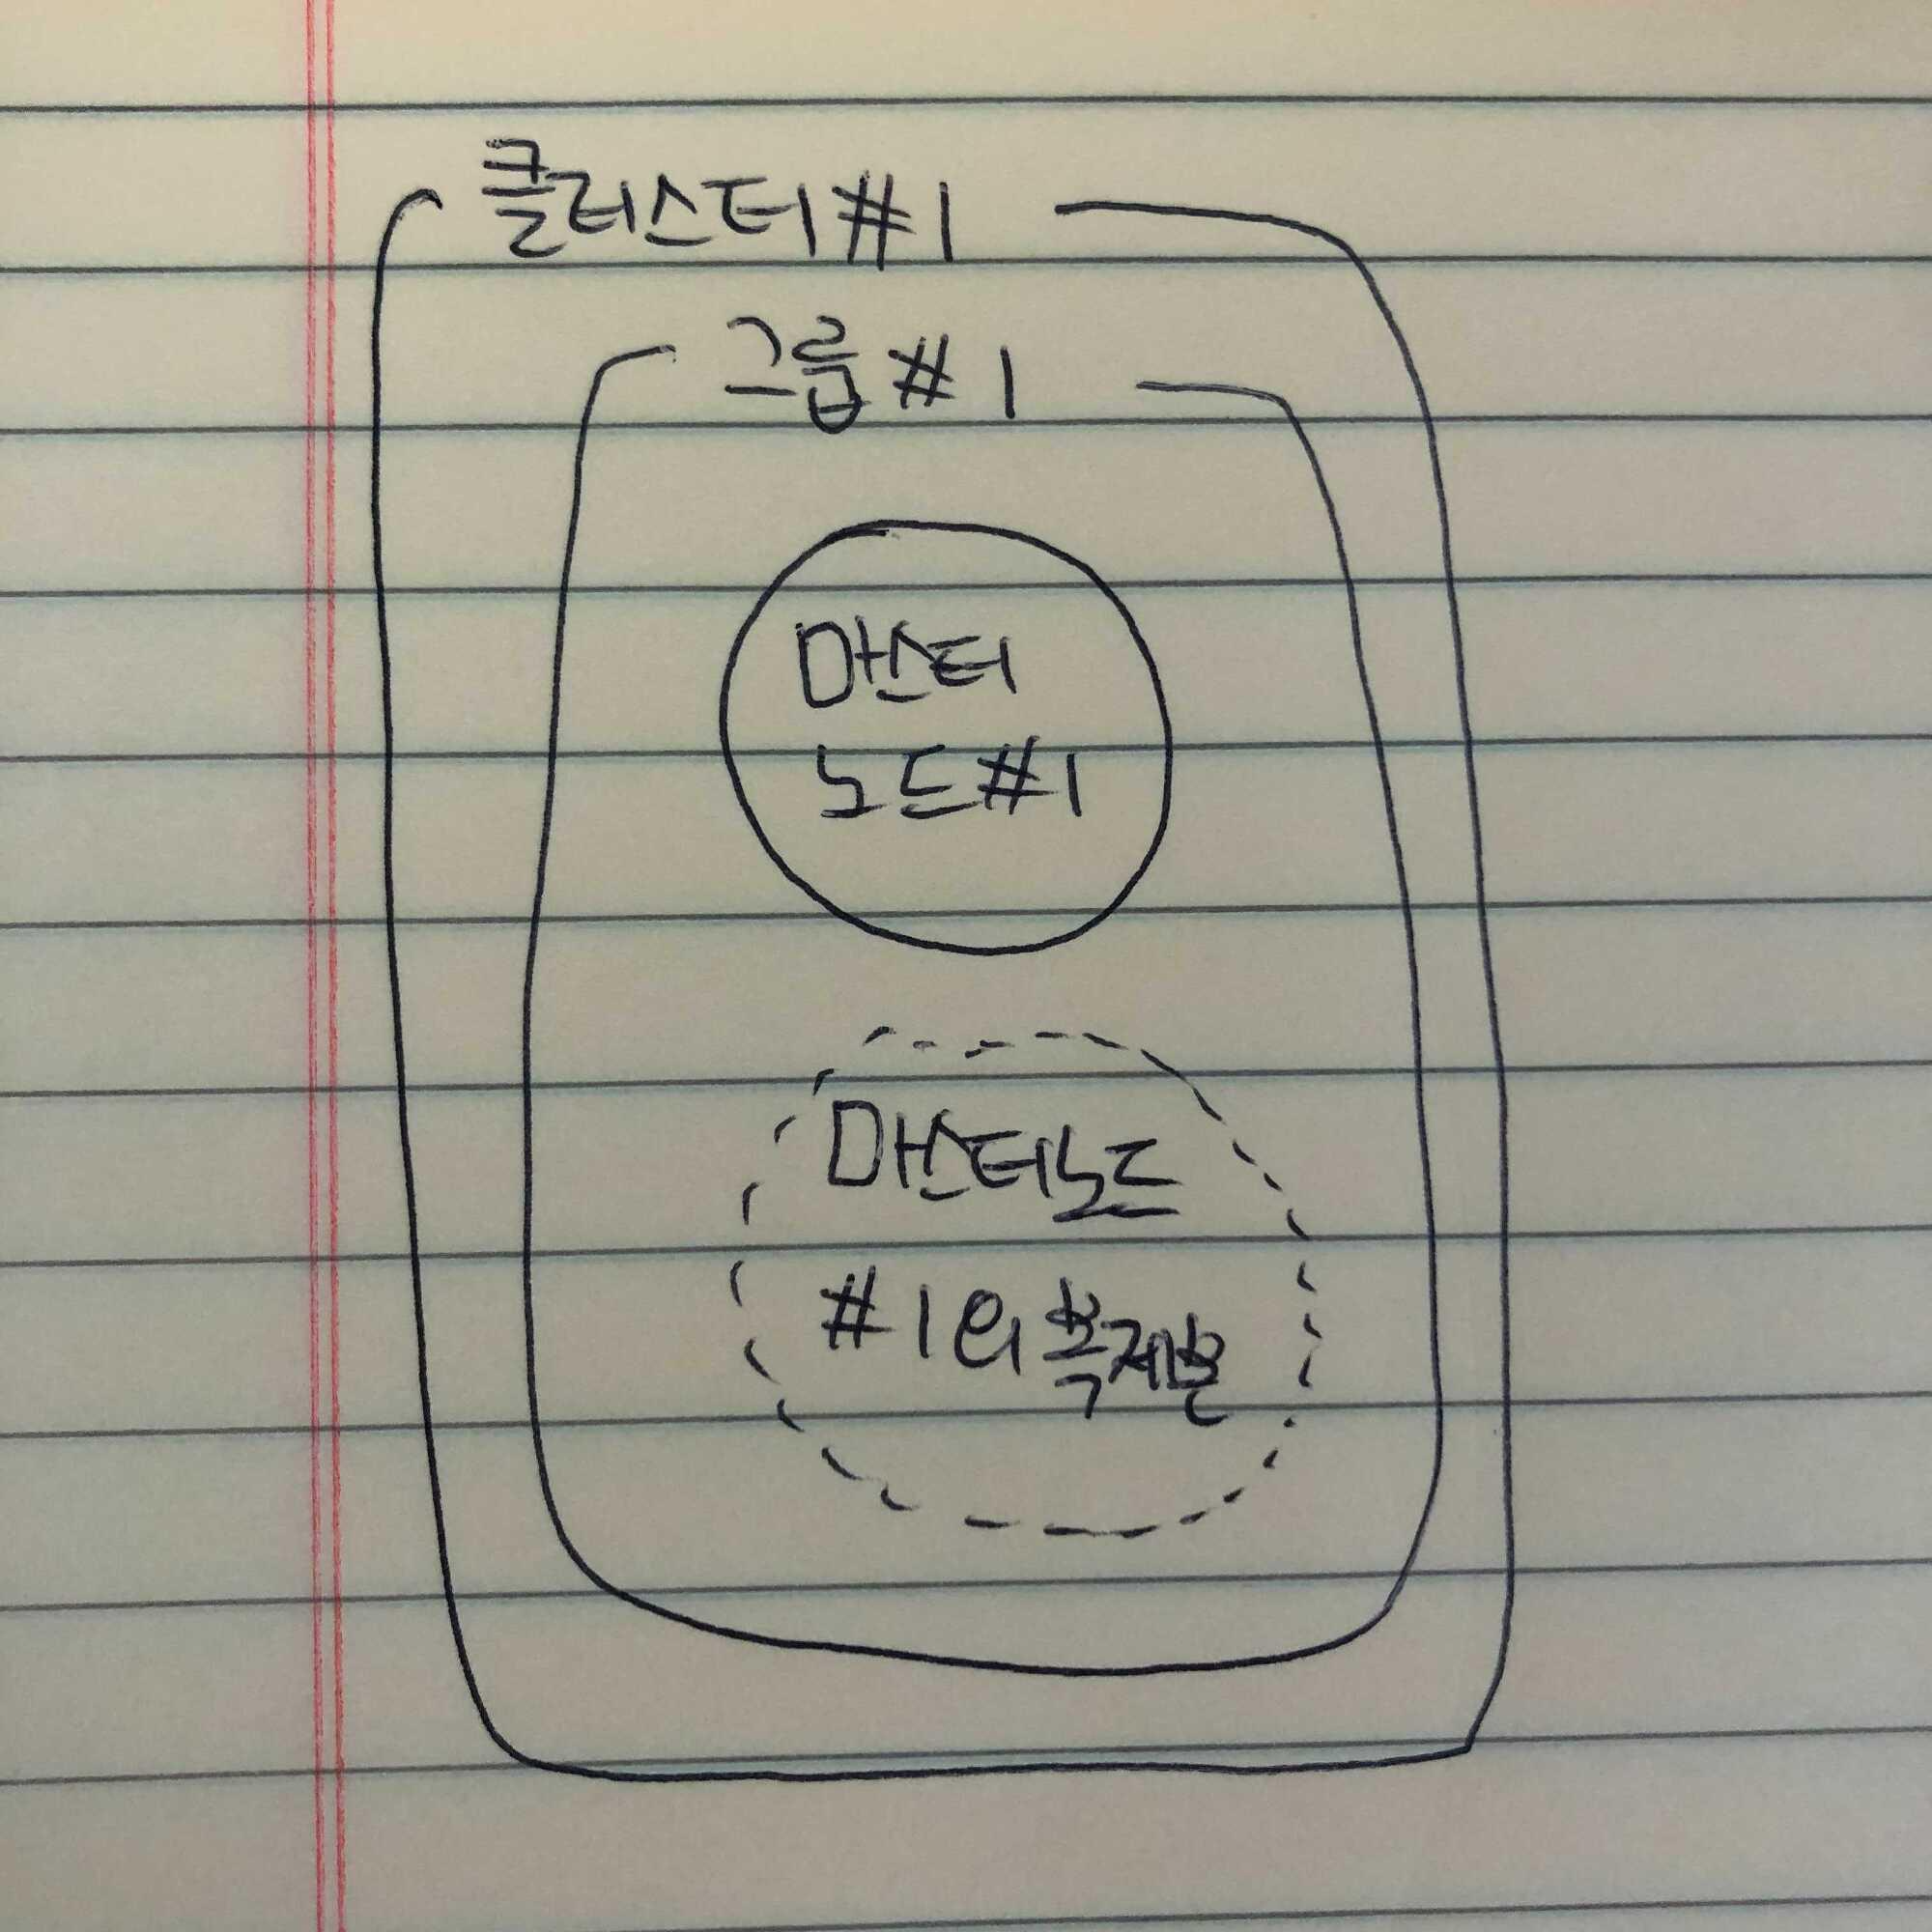 클러스터#1
그룹#1
마스터
노드#1
마스터노드
#1의 복제본